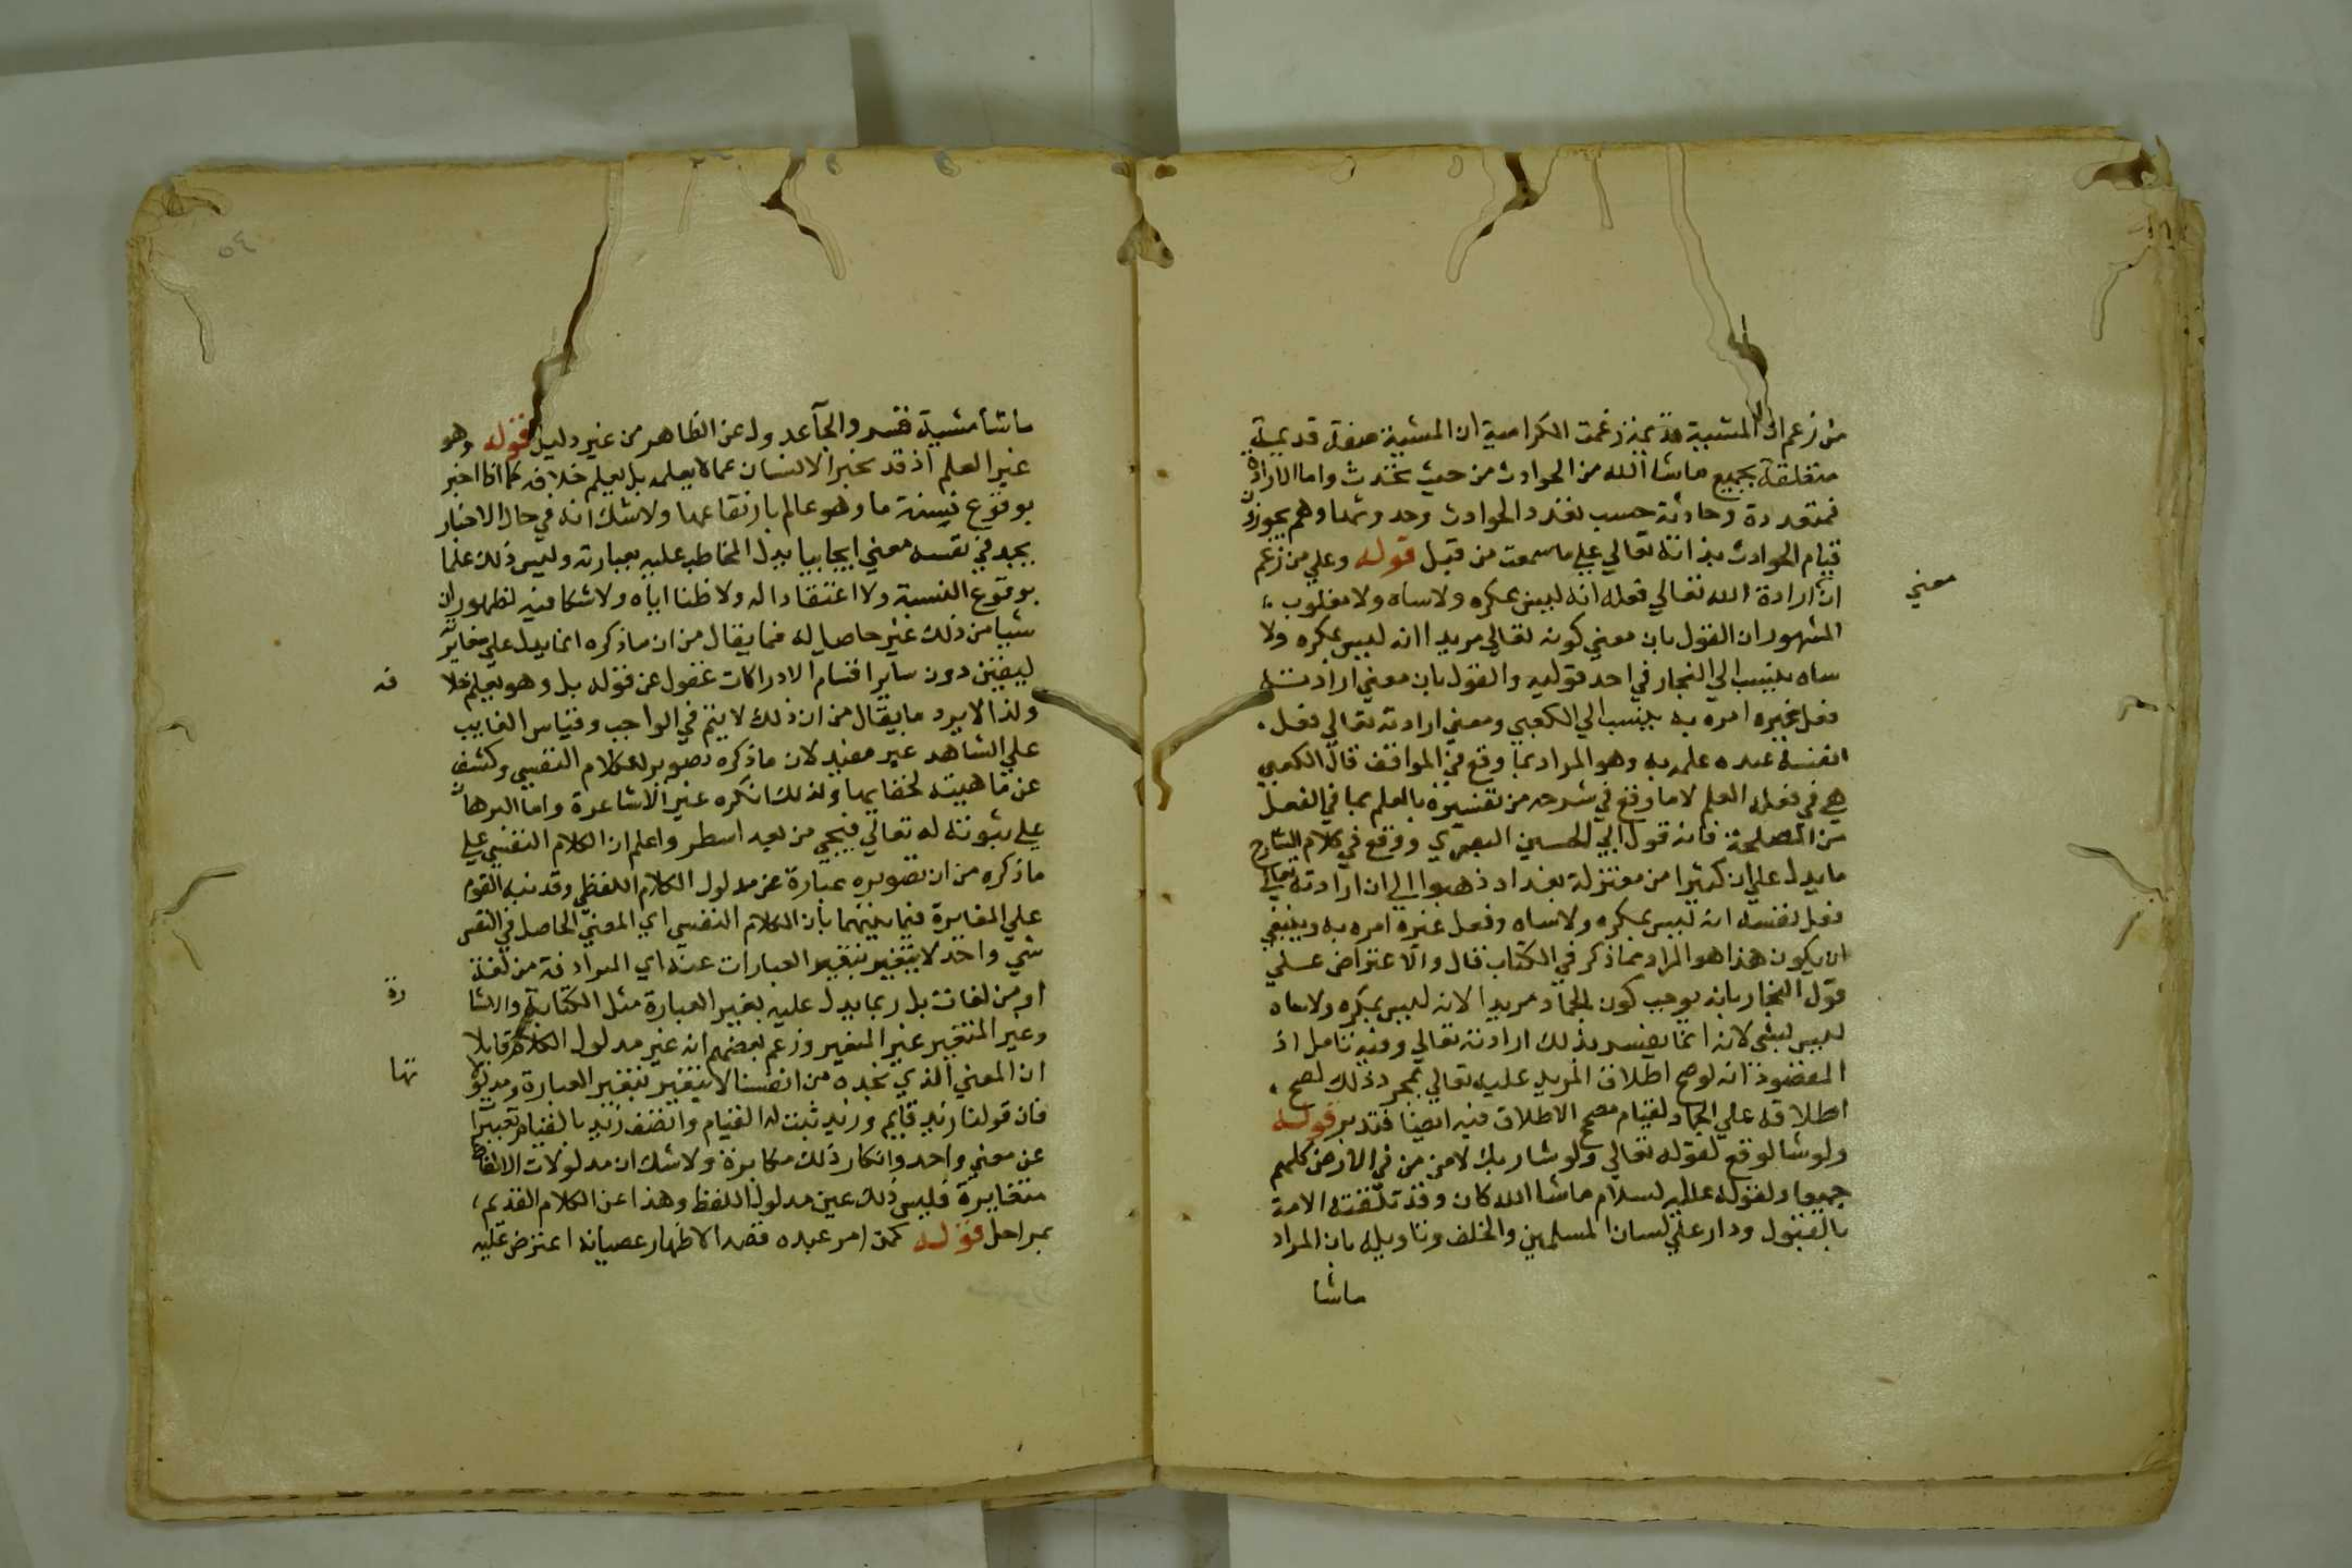 من زعم ان المشيية قديمة زعمت الكرامية ان المشيية صفة قديمة
متعلقة بجميع ماشا الله من الحوادث من حيث تحدث واما الارادة
فمتعددة وحادثة حسب تعدد الحوادث وحدوثها وهم يجوزون
قيام الحوادث بذاته تعالي علي ماسمعت من قبل قوله وعلي من زعم
ان ارادة الله تعالي فعله انه ليس بمكره ولا ساه ولا مغلوب
معني
المشهور ان القول بان معني كونه تعالي مريدا انه ليس بمكره ولا
ساه ينسب الي النجار في احد قوليه والقول بان معني ارادته
فعل غيره امره به ينسب الي الكعبي ومعني ارادته تعالي فعل
نفسه عنده علمه به وهو المراد بما وقع في المواقف قال الكعبي
هي في فعله العلم لا ما وقع في شرحه من تفسيره بالعلم بما في الفعل
من المصلحة فانه قول ابي الحسين البصري ووقع في كلام الشارح
مايدل علي ان كثيرا من معتزلة بغداد ذهبوا الي ان ارادته تعالي
فعل نفسه انه ليس بمكره ولا ساه وفعل غيره امره به وينبغي
ان يكون هذا هو المراد مما ذكر في الكتاب قال والاعتراض علي
قول النجار بانه يوجب كون الجماد مريدا لانه ليس بمكره ولا ساه
ليس بشي لانه انما يفسر بذلك ارادته تعالي وفيه تامل اذ
المقصود انه لوصح اطلاق المريد عليه تعالي بمجرد ذلك لصح
اطلاقه علي الجماد لقيام مصحح الاطلاق فيه ايضا فتدبر قوله
ولو شا لوقع لقوله تعالي ولو شا ربك لامن من في الارض كلهم
جميعا ولقوله عليه السلام ماشا الله كان وقد تلقته الامة
بالقبول ودار علي لسان المسلمين والخلف وتاويله بان المراد
ماشا
٥٤
ماشا مشيية قسر والجآ عدول عن الظاهر من غير دليل قوله وهو
غير العلم اذ قد يخبر الانسان عما لا يعلمه بل يعلم خلافه كما اذا اخبر
بوقوع نسبة ما وهو عالم بارتفاعها ولا شك انه في حال الاخبار
يجد في نفسه معني ايجابيا يدل المخاطب عليه بعبارته وليس ذلك علما
بوقوع النسبة ولا اعتقادا له ولا ظنا اياه ولا شكا فيه لظهور ان
شيا من ذلك غير حاصل له فما يقال من ان ماذكره انما يدل علي مغايرة
ليقين دون ساير اقسام الادراكات غفول عن قوله بل وهو يعلم خلا
فه
ولذا لا يرد ما يقال من ان ذلك لا يتم في الواجب وقياس الغايب
علي الشاهد غير مفيد لان ماذكره تصوير للكلام النفسي وكشف
عن ماهيته لخفايها ولذلك انكره غير الاشاعرة واما البرهان
علي ثبوته له تعالي فيجي من بعد اسطر واعلم ان الكلام النفسي علي
ماذكره من ان تصويره عبارة عن مدلول الكلام اللفظي وقد نبه القوم
علي المغايرة فيما بينهما بان الكلام النفسي اي المعني الحاصل في النفس
شي واحد لا يتغير بتغير العبارات عنه اي المرادفة من لغة
او من لغات بل ربما يدل عليه بغير العبارة مثل الكتابة والاشا
رة
وغير المتغير غير المتغير وزعم بعضهم انه غير مدلول الكلام قايلا
ان المعني الذي نجده من انفسنا لا يتغير بتغير العبارة ومدلولا
تها
فان قولنا زيد قايم وزيد ثبت له القيام واتصف زيد بالقيام تعبير
عن معني واحد وانكار ذلك مكابرة ولا شك ان مدلولات الالفاظ
متغايرة فليس ذلك عين مدلول اللفظ وهذا عن الكلام القديم
بمراحل قوله كمن امر عبده قصدا لاظهار عصيانه اعترض عليه